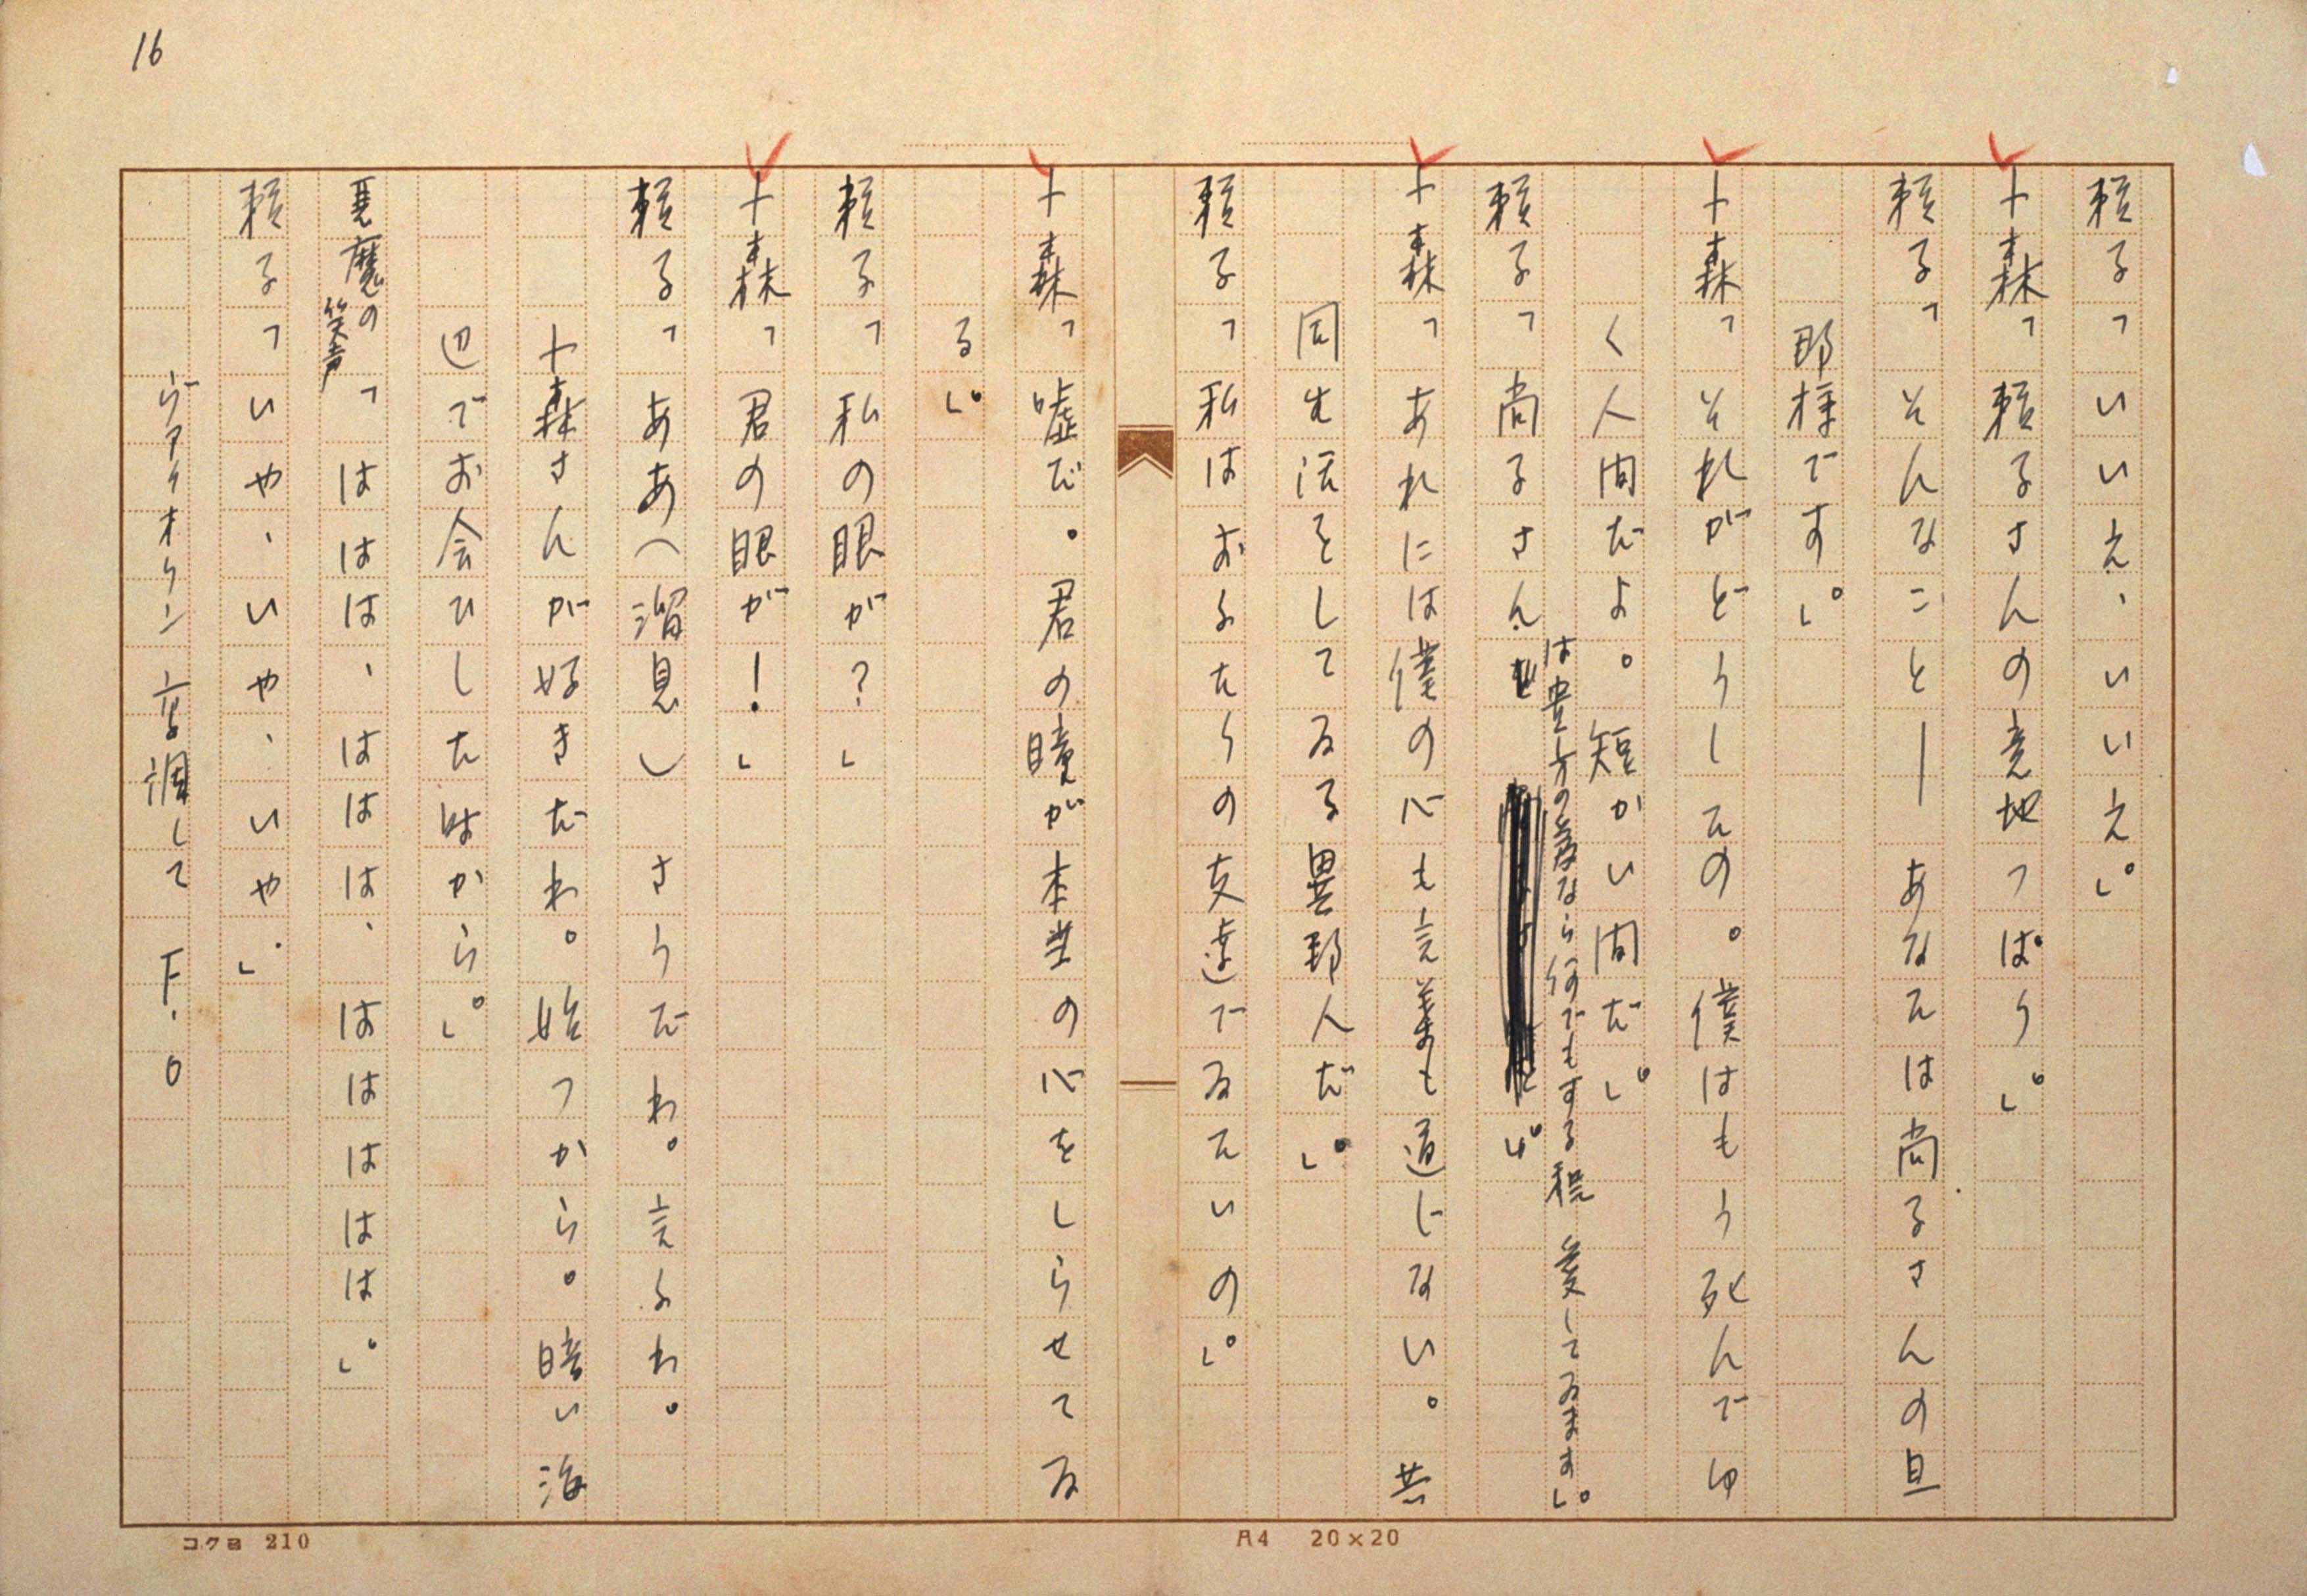 16
頼子「いいえ、いいえ。」
十森「頼子さんの意地つぱり。」
頼子「そんなこと―― あなたは尚子さんの旦
那様です。」
十森「それがどうしたの。僕はもう死んでゆ
く人間だよ。短かい間だ。」
頼子「尚子さん
は貴方の為なら何でもする程 愛してゐます。」
十森「あれには僕の心も言葉も通じない。共
同生活をしてゐる異邦人だ。」
頼子「私はおふたりの友達でゐたいの。」
十森「嘘だ。君の瞳が本当の心をしらせてゐ
る。」
頼子「私の眼が?」
十森「君の眼が!」
頼子「ああ(溜息) さうだわ。言ふわ。
十森さんが好きだわ。始つから。暗い海
辺でお会ひした時から。」
悪魔の笑声「ははは、ははは、ははははは。」
頼子「いや、いや、いや。」
ヴァイオリン 高調して F・O
コクヨ 210
A4 20×20